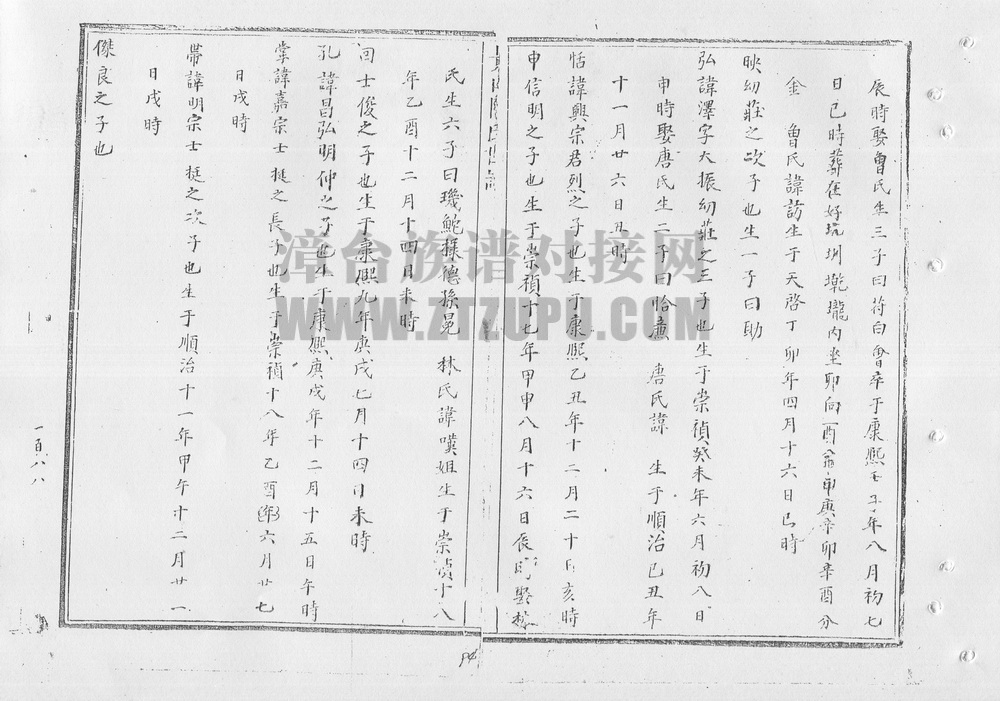 辰時娶魯氏生三子曰符白會卒于康熙壬子年八月初七
日巳時葬在好坑圳墘壠内坐卯向酉庚辛卯辛酉分
金 魯氏諱訪生于天啓丁卯年四月十六日巳時
映幼莊之次子也生一子曰助
弘諱澤字大振幼莊之三子也生于崇禎癸未年六月初八日
申時娶唐氏生二子曰恰 唐氏諱 生于順治己丑年
十一月廿六日丑時
恬諱興宗君烈之子也生于康熙乙丑年十二月二十日亥時
申信明之子也生于崇禎十七年甲申八月十六日辰時娶林
氏生六子曰璣鮑 德 晃 林氏諱 姐生于崇禎十八
年乙酉十二月十四日未時
回士俊之子也生于康熙九年庚戌七月十四日未時
孔諱昌弘明仲之子也生于康熙庚戌年十二月十五日午時
掌諱嘉宗士挺之長子也生于崇禎十八年乙酉(年)六月廿七
日戌時
帶諱明宗士挺之次子也生于順治十一年甲午十二月廿一
日戌時
傑良之子也
一百八八
漳台族谱对接网
WWW.ZTZUPU.COM